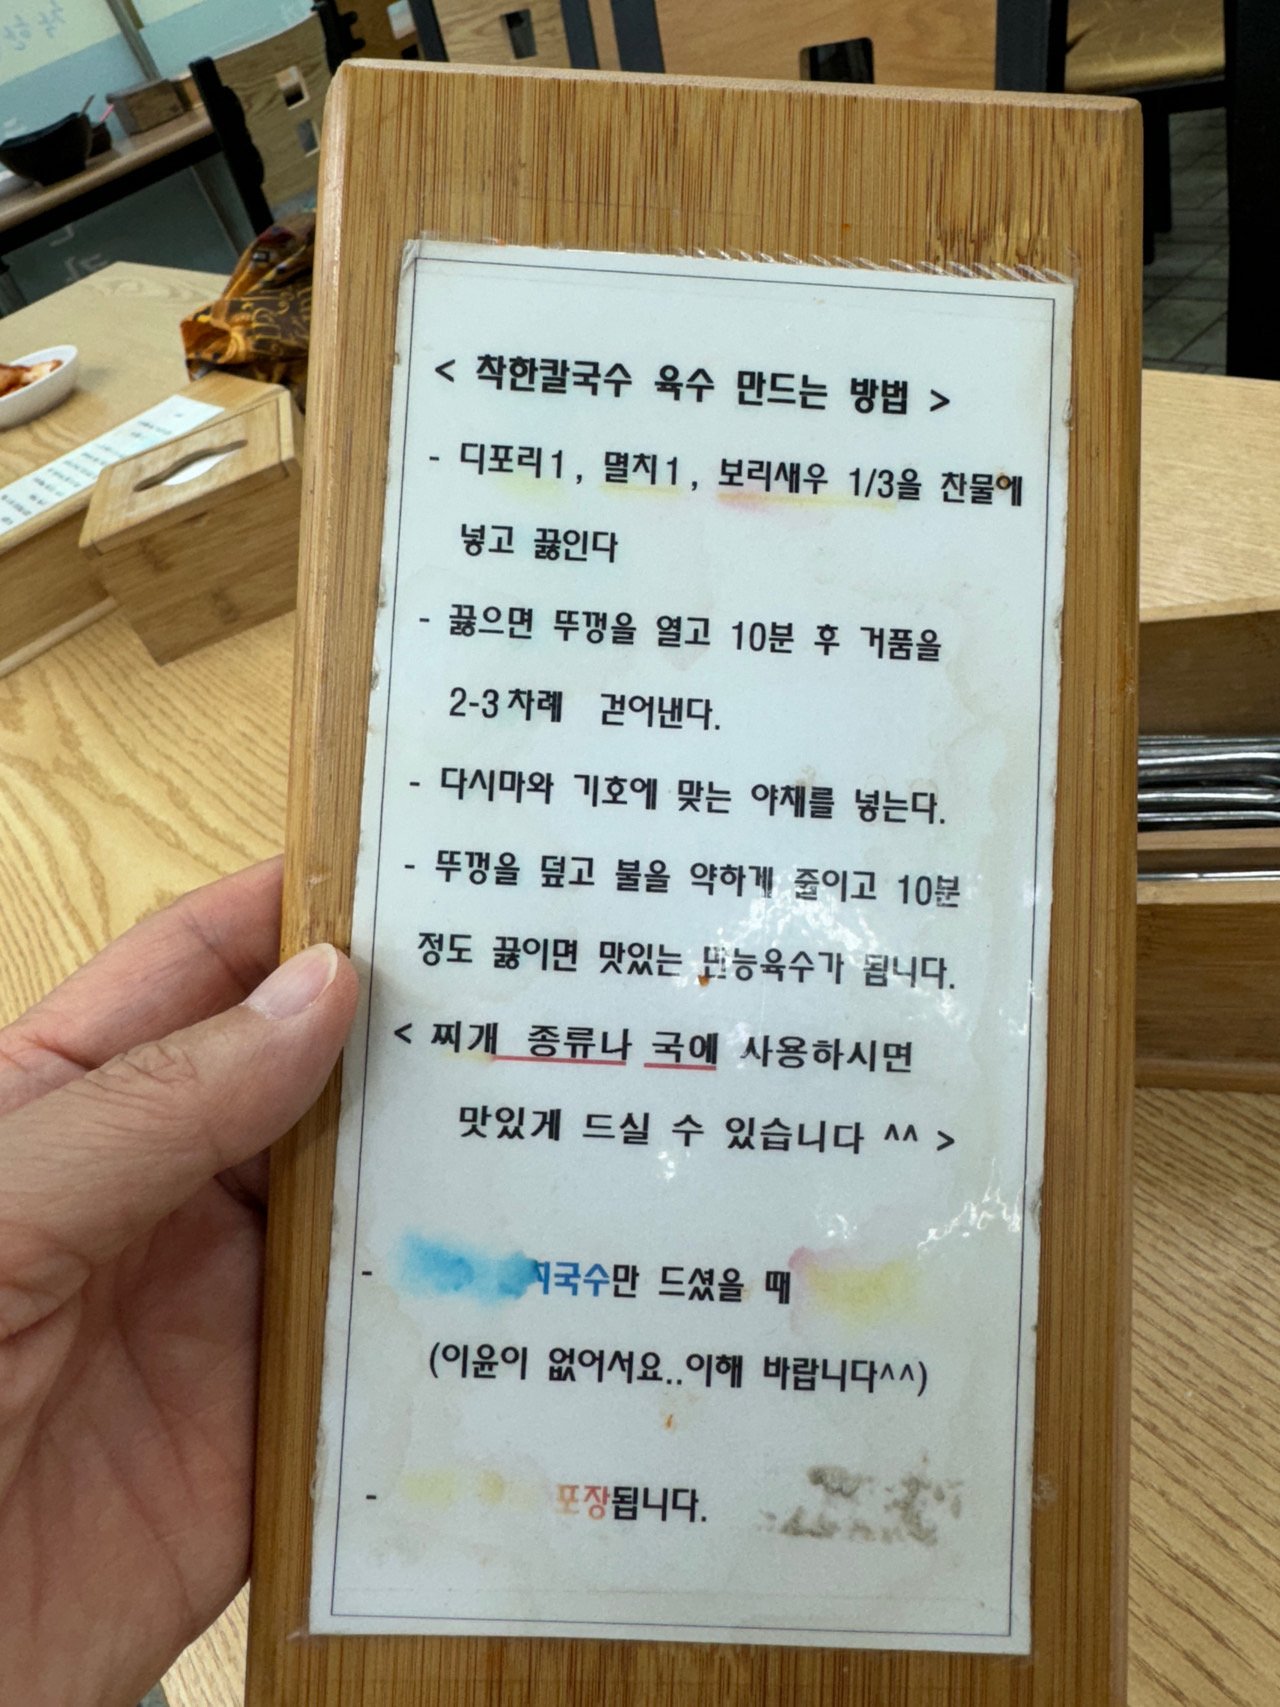 < 착한칼국수 육수 만드는 방법 >
- 디포리1, 멸치1, 보리새우 1/3을 찬물에
넣고 끓인다
- 끓으면 뚜껑을 열고 10분 후 거품을
2-3차례 걷어낸다.
- 다시마와 기호에 맞는 야채를 넣는다.
- 뚜껑을 덮고 불을 약하게 줄이고 10분
정도 끓이면 맛있는 만능육수가 됩니다.
< 찌개 종류나 국에 사용하시면
맛있게 드실 수 있습니다 ^^ >
- 국수만 드셨을 때
(이윤이 없어서요..이해 바랍니다^^)
- 포장됩니다.